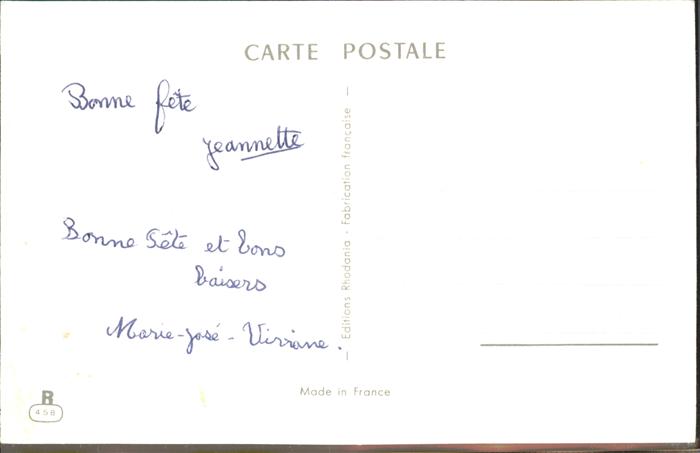 CARTE POSTALE
Bonne fête
jeannette
Bonne fête et bons
baisers
Marie-José - Viviane.
Editions Rhodania - Fabrication française
Made in France
R
458